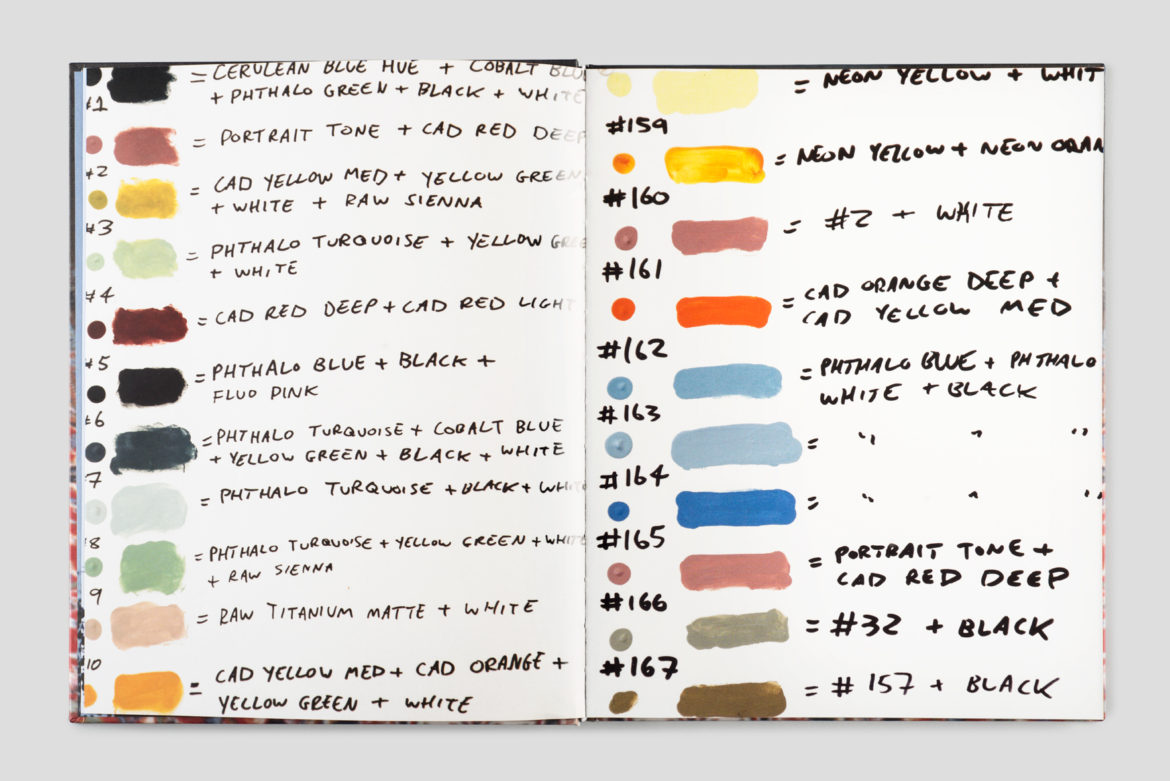 = CERULEAN BLUE HUE + COBALT BLUE
+ PHTHALO GREEN + BLACK + WHITE
#1
= PORTRAIT TONE + CAD RED DEEP
#2
= CAD YELLOW MED + YELLOW GREEN
+ WHITE + RAW SIENNA
#3
= PHTHALO TURQUOISE + YELLOW GREE
+ WHITE
#4
= CAD RED DEEP + CAD RED LIGHT
#5
= PHTHALO BLUE + BLACK +
FLUO PINK
#6
= PHTHALO TURQUOISE + COBALT BLUE
+ YELLOW GREEN + BLACK + WHITE
7
= PHTHALO TURQUOISE + BLACK + WHITE
8
= PHTHALO TURQUOISE + YELLOW GREEN + WHITE
+ RAW SIENNA
9
= RAW TITANIUM MATTE + WHITE
10
= CAD YELLOW MED + CAD ORANGE +
YELLOW GREEN + WHITE
= NEON YELLOW + WHIT
#159
= NEON YELLOW + NEON ORAN
#160
= #2 + WHITE
#161
= CAD ORANGE DEEP +
CAD YELLOW MED
#162
= PHTHALO BLUE + PHTHALO
WHITE + BLACK
#163
= " " "
#164
= " " "
#165
= PORTRAIT TONE +
CAD RED DEEP
#166
= #32 + BLACK
#167
= # 157 + BLACK